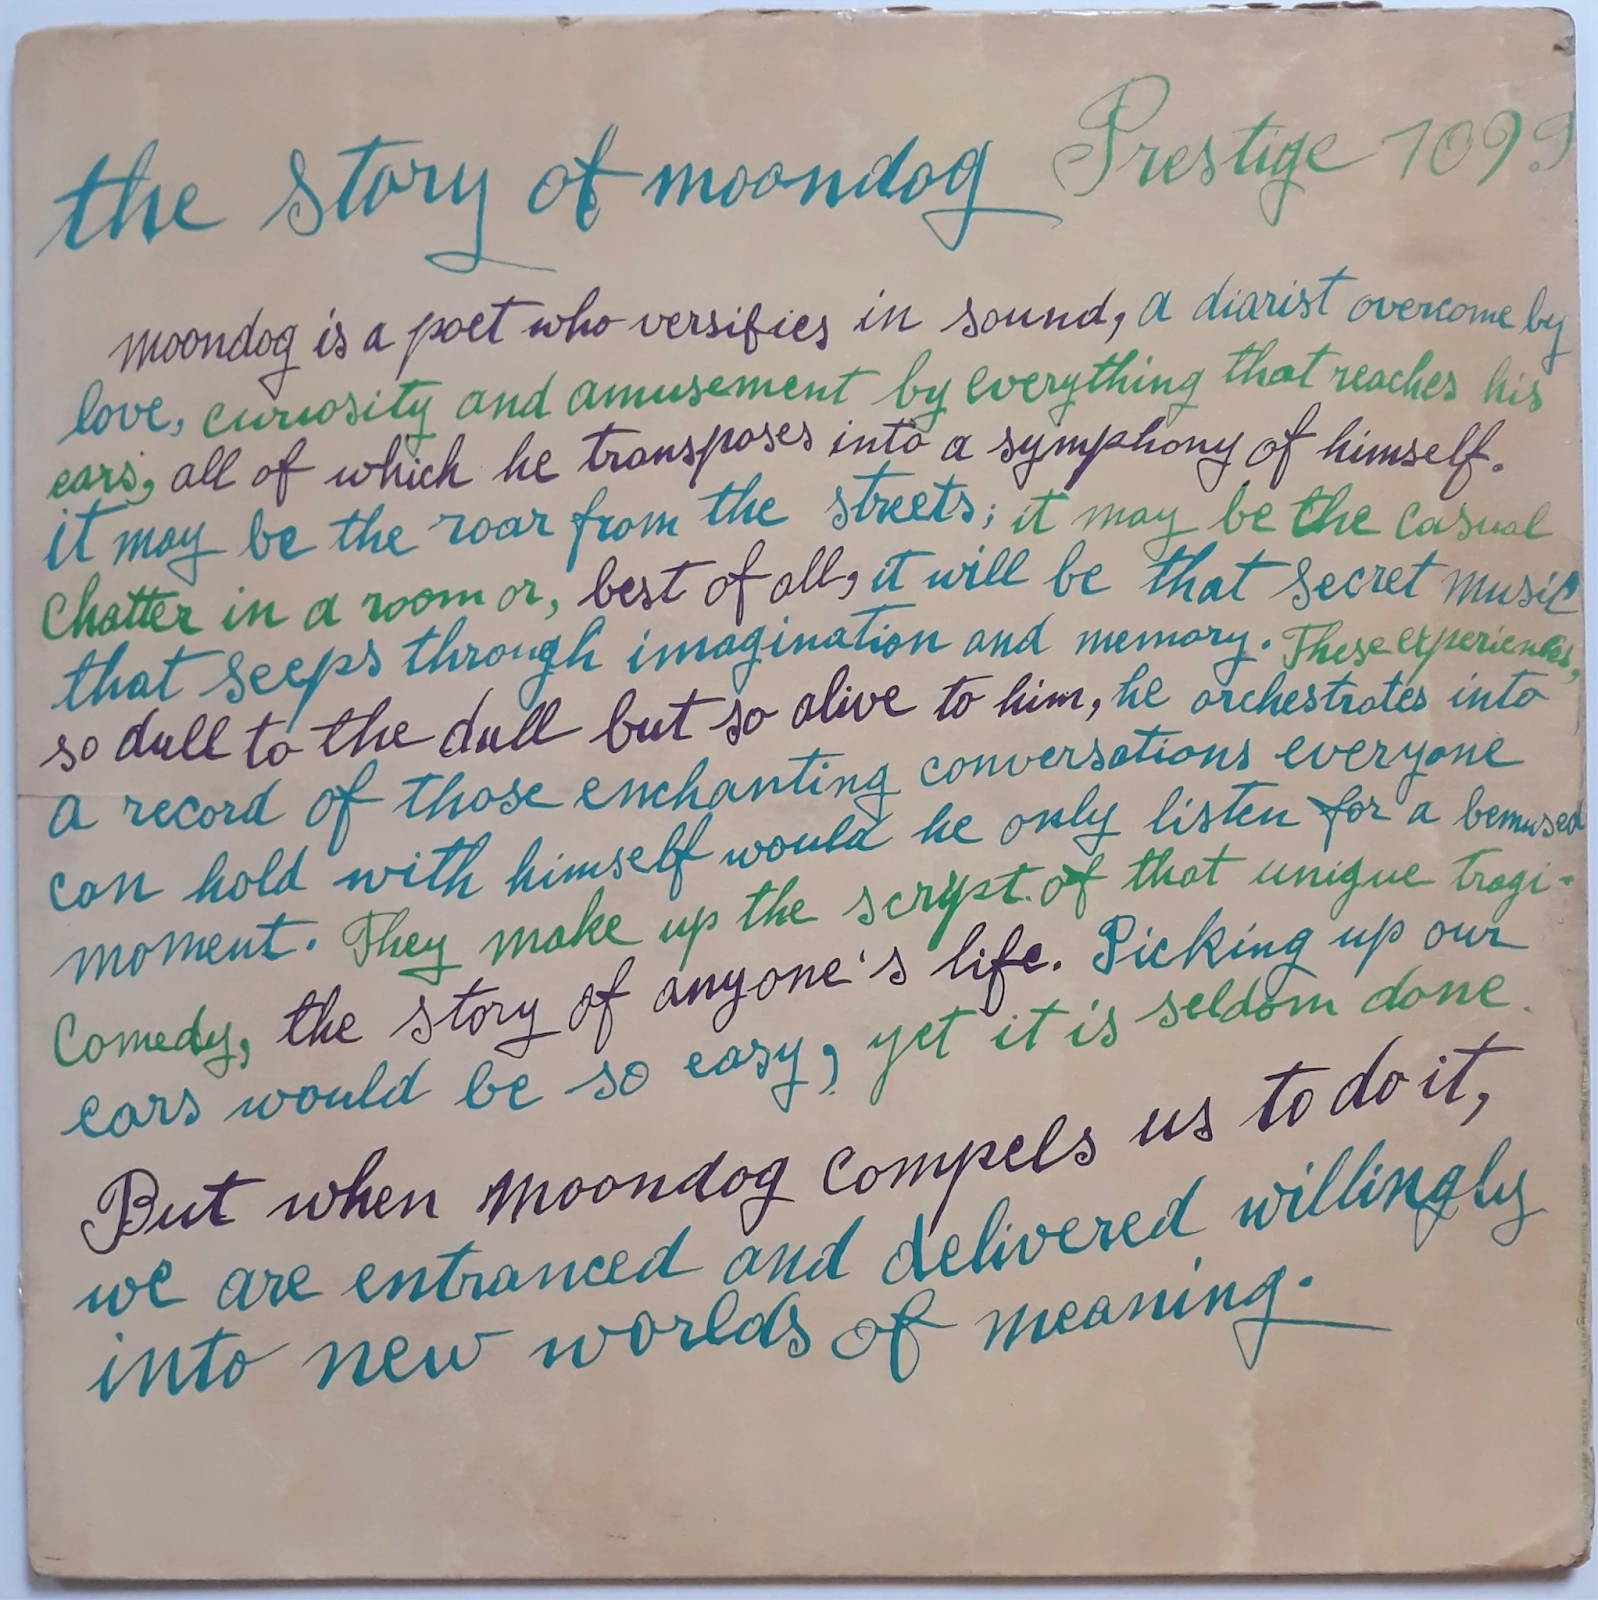 the story of moondog Prestige 7099
moondog is a poet who versifies in sound, a diarist overcome by
love, curiosity and amusement by everything that reaches his
ears, all of which he transposes into a symphony of himself.
it may be the roar from the streets; it may be the casual
chatter in a room or, best of all, it will be that secret music
that seeps through imagination and memory. These experiences,
so dull to the dull but so alive to him, he orchestrates into
a record of those enchanting conversations everyone
can hold with himself would he only listen for a bemused
moment. They make up the script of that unique tragi-
Comedy, the story of anyone's life. Picking up our
ears would be so easy, yet it is seldom done.
But when moondog compels us to do it,
we are entranced and delivered willingly
into new worlds of meaning.